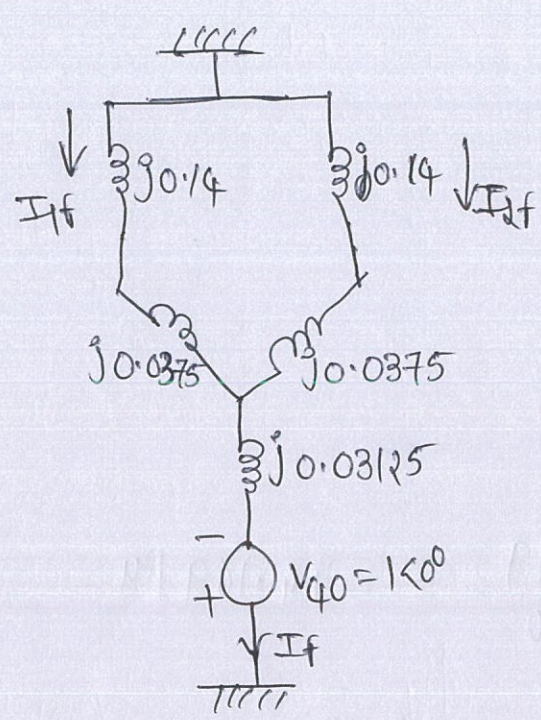 j0.14
j0.14
I1f
I2f
j0.0375
j0.0375
j0.03125
−
V40 = 1<0⁰
+
If